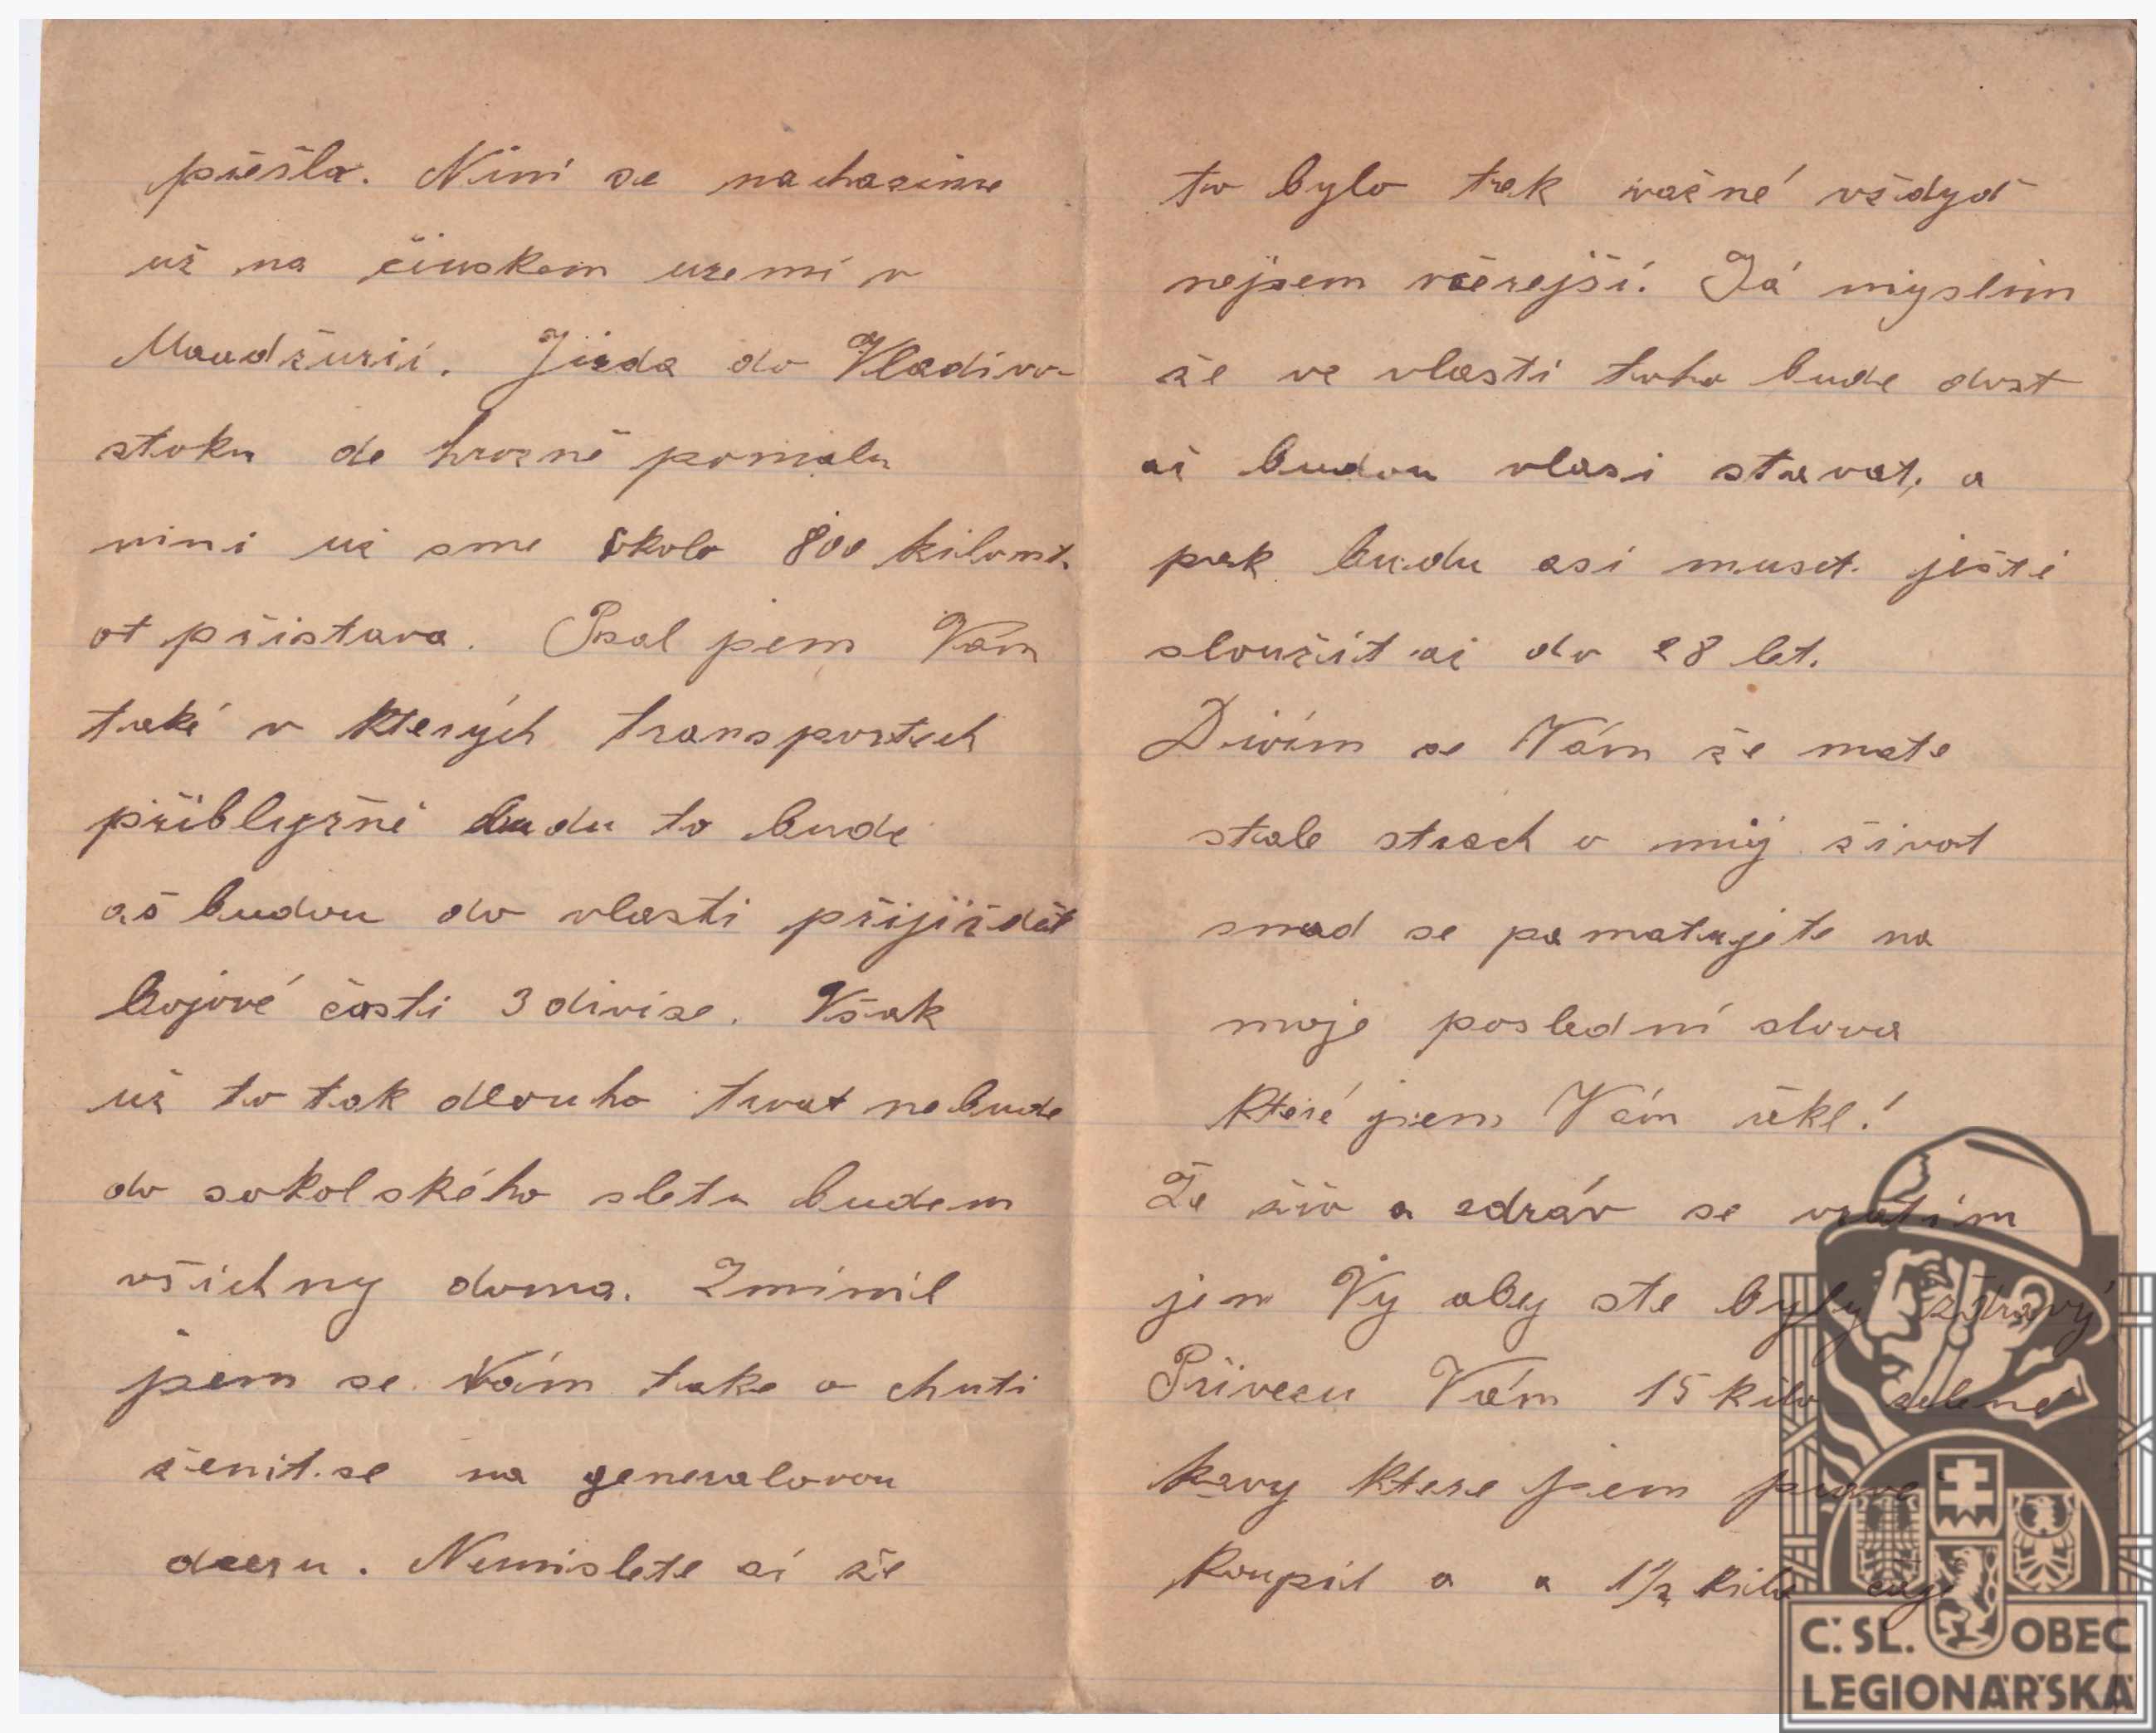 přešla. Nini se nachazime
už na činskem uzemi v
Mandžurii. Jizda do Vladivo-
stoku de hrozně pomalu
nini už sme okolo 800 kilomt.
ot přistava. Psal jsem Vám
také v kterých transportech
přiblyžně budu to bude
aš budou do vlasti přijiždět
bojové časti 3 divise. Však
už to tak dlouho trvat nebude
do sokolského sletu budem
všichny doma. Zminil
jsem se Vám take o chuti
ženit.se na generalovou
dceru. Nemislete si že
to bylo tak važné vždyď
nejsem včerejší. Já myslim
že ve vlasti toho bude dost
až budou vlasi stavat, a
pak budu asi muset ješti
sloužit až do 28 let.
Divím se Vám že mate
stale strach o můj život
snad se pamatujete na
moje poslední slova
které jsem Vám řekl!
Že živ a zdráv se vratim
jen Vy aby ste byly zdravý
Přivezu Vám 15 kilo zelené
kavy ktere jsem pravě
koupil a a 1½ kila čaje
Č. SL. OBEC
LEGIONÁŘSKÁ